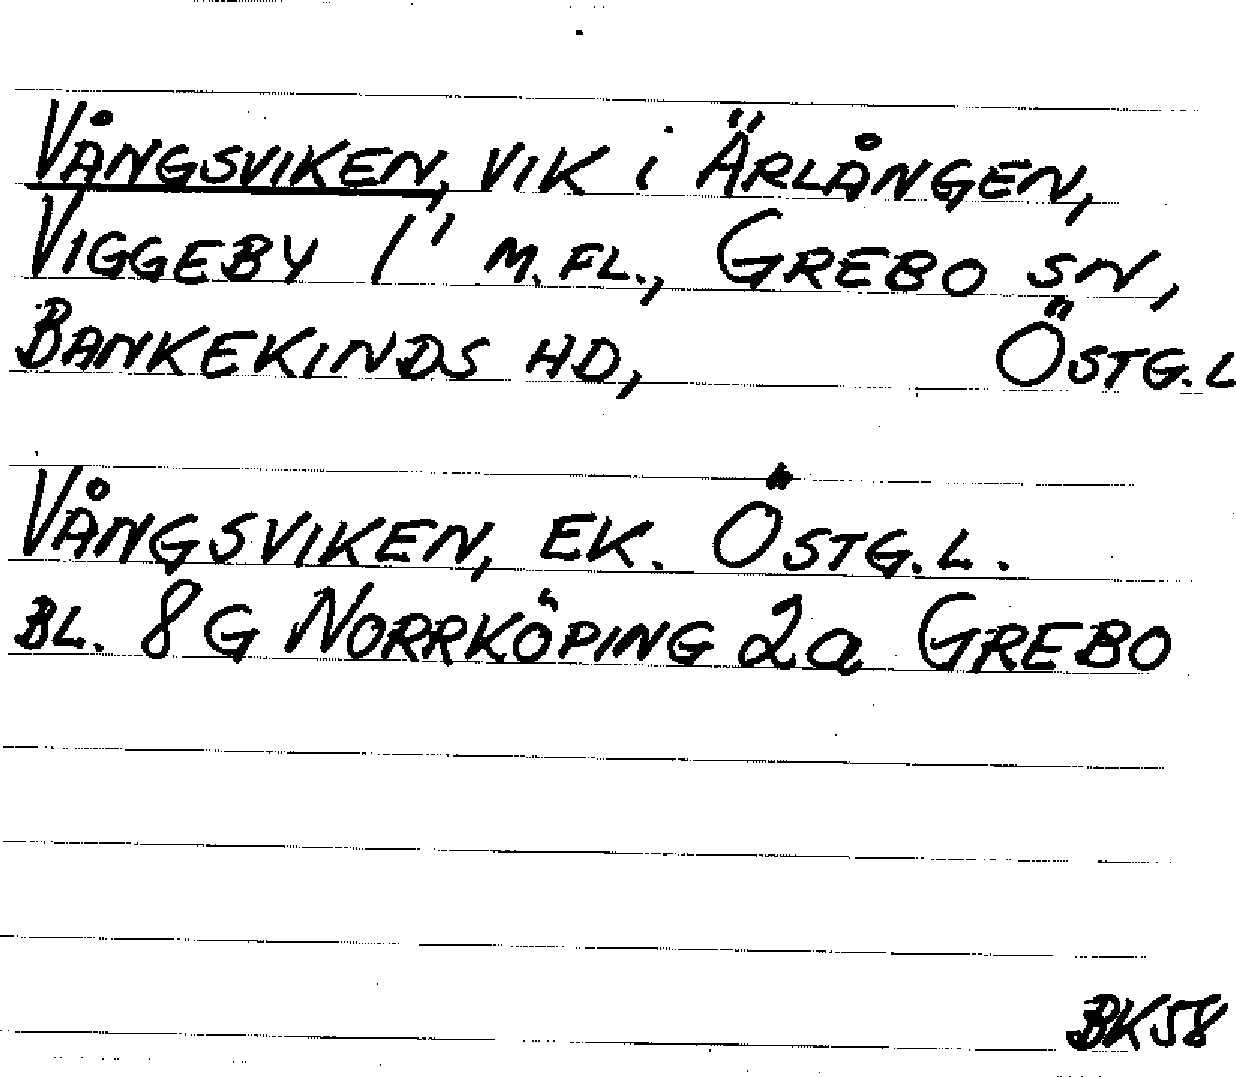 VÅNGSVIKEN, VIK i ÄRLÅNGEN,
VIGGEBY 1' M.FL., GREBO SN,
BANKEKINDS HD, ÖSTG.L
VÅNGSVIKEN, EK. ÖSTG.L.
BL. 8G NORRKÖPING 2a GREBO
BK58